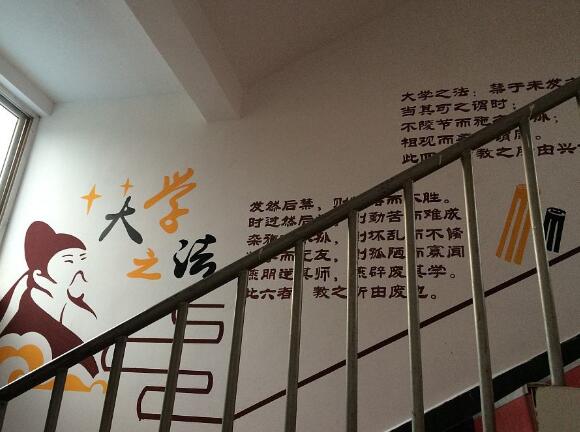 大学
之法
大学之法：禁于未发
当其可之谓时；
不陵节而施
相观而 谓摩。
此四 教之所由兴
发然后禁， 而不胜。
时过然后 则勤苦而难成
杂施 则坏乱而不修
而无友 则孤陋而寡闻
燕朋逆其师，燕辟废其学。
此六者 教之所由废也。